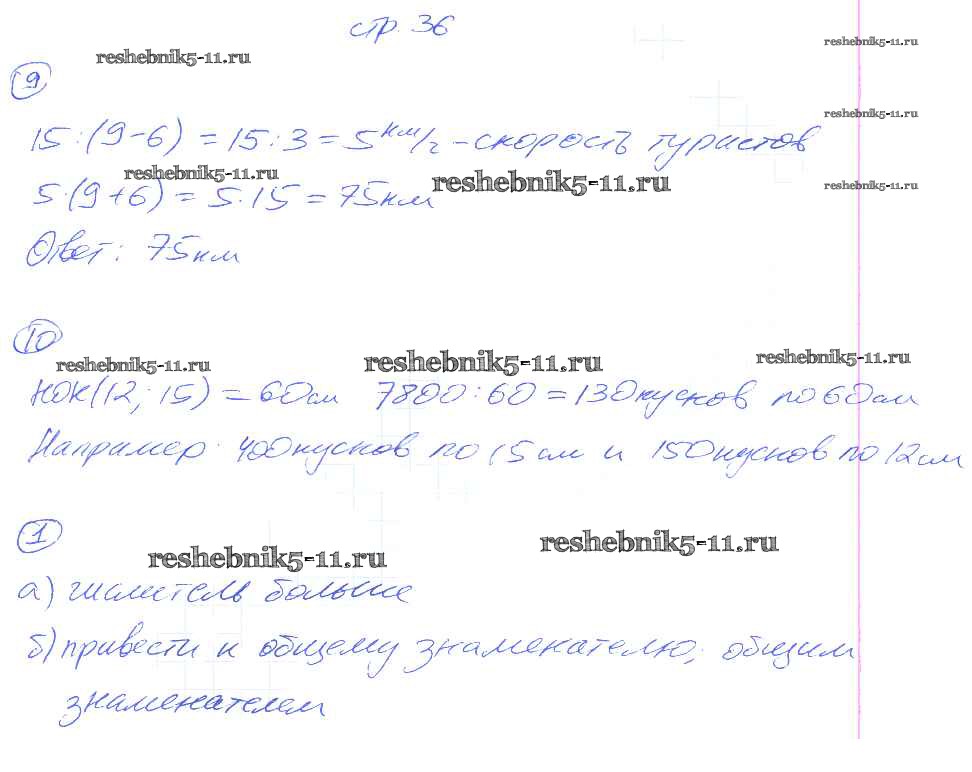 стр. 36
reshebnik5-11.ru
reshebnik5-11.ru
9
reshebnik5-11.ru
15:(9-6) = 15:3 = 5 км/г - скорость туристов
reshebnik5-11.ru
reshebnik5-11.ru
reshebnik5-11.ru
5·(9+6) = 5·15 = 75км
Ответ: 75км
10
reshebnik5-11.ru
reshebnik5-11.ru
reshebnik5-11.ru
НОК(12; 15) = 60см 7800:60 = 130кусков по 60см
Например: 400кусков по 15см и 150кусков по 12см
1
reshebnik5-11.ru
reshebnik5-11.ru
а) числитель больше
б) привести к общему знаменателю; общим
знаменателем